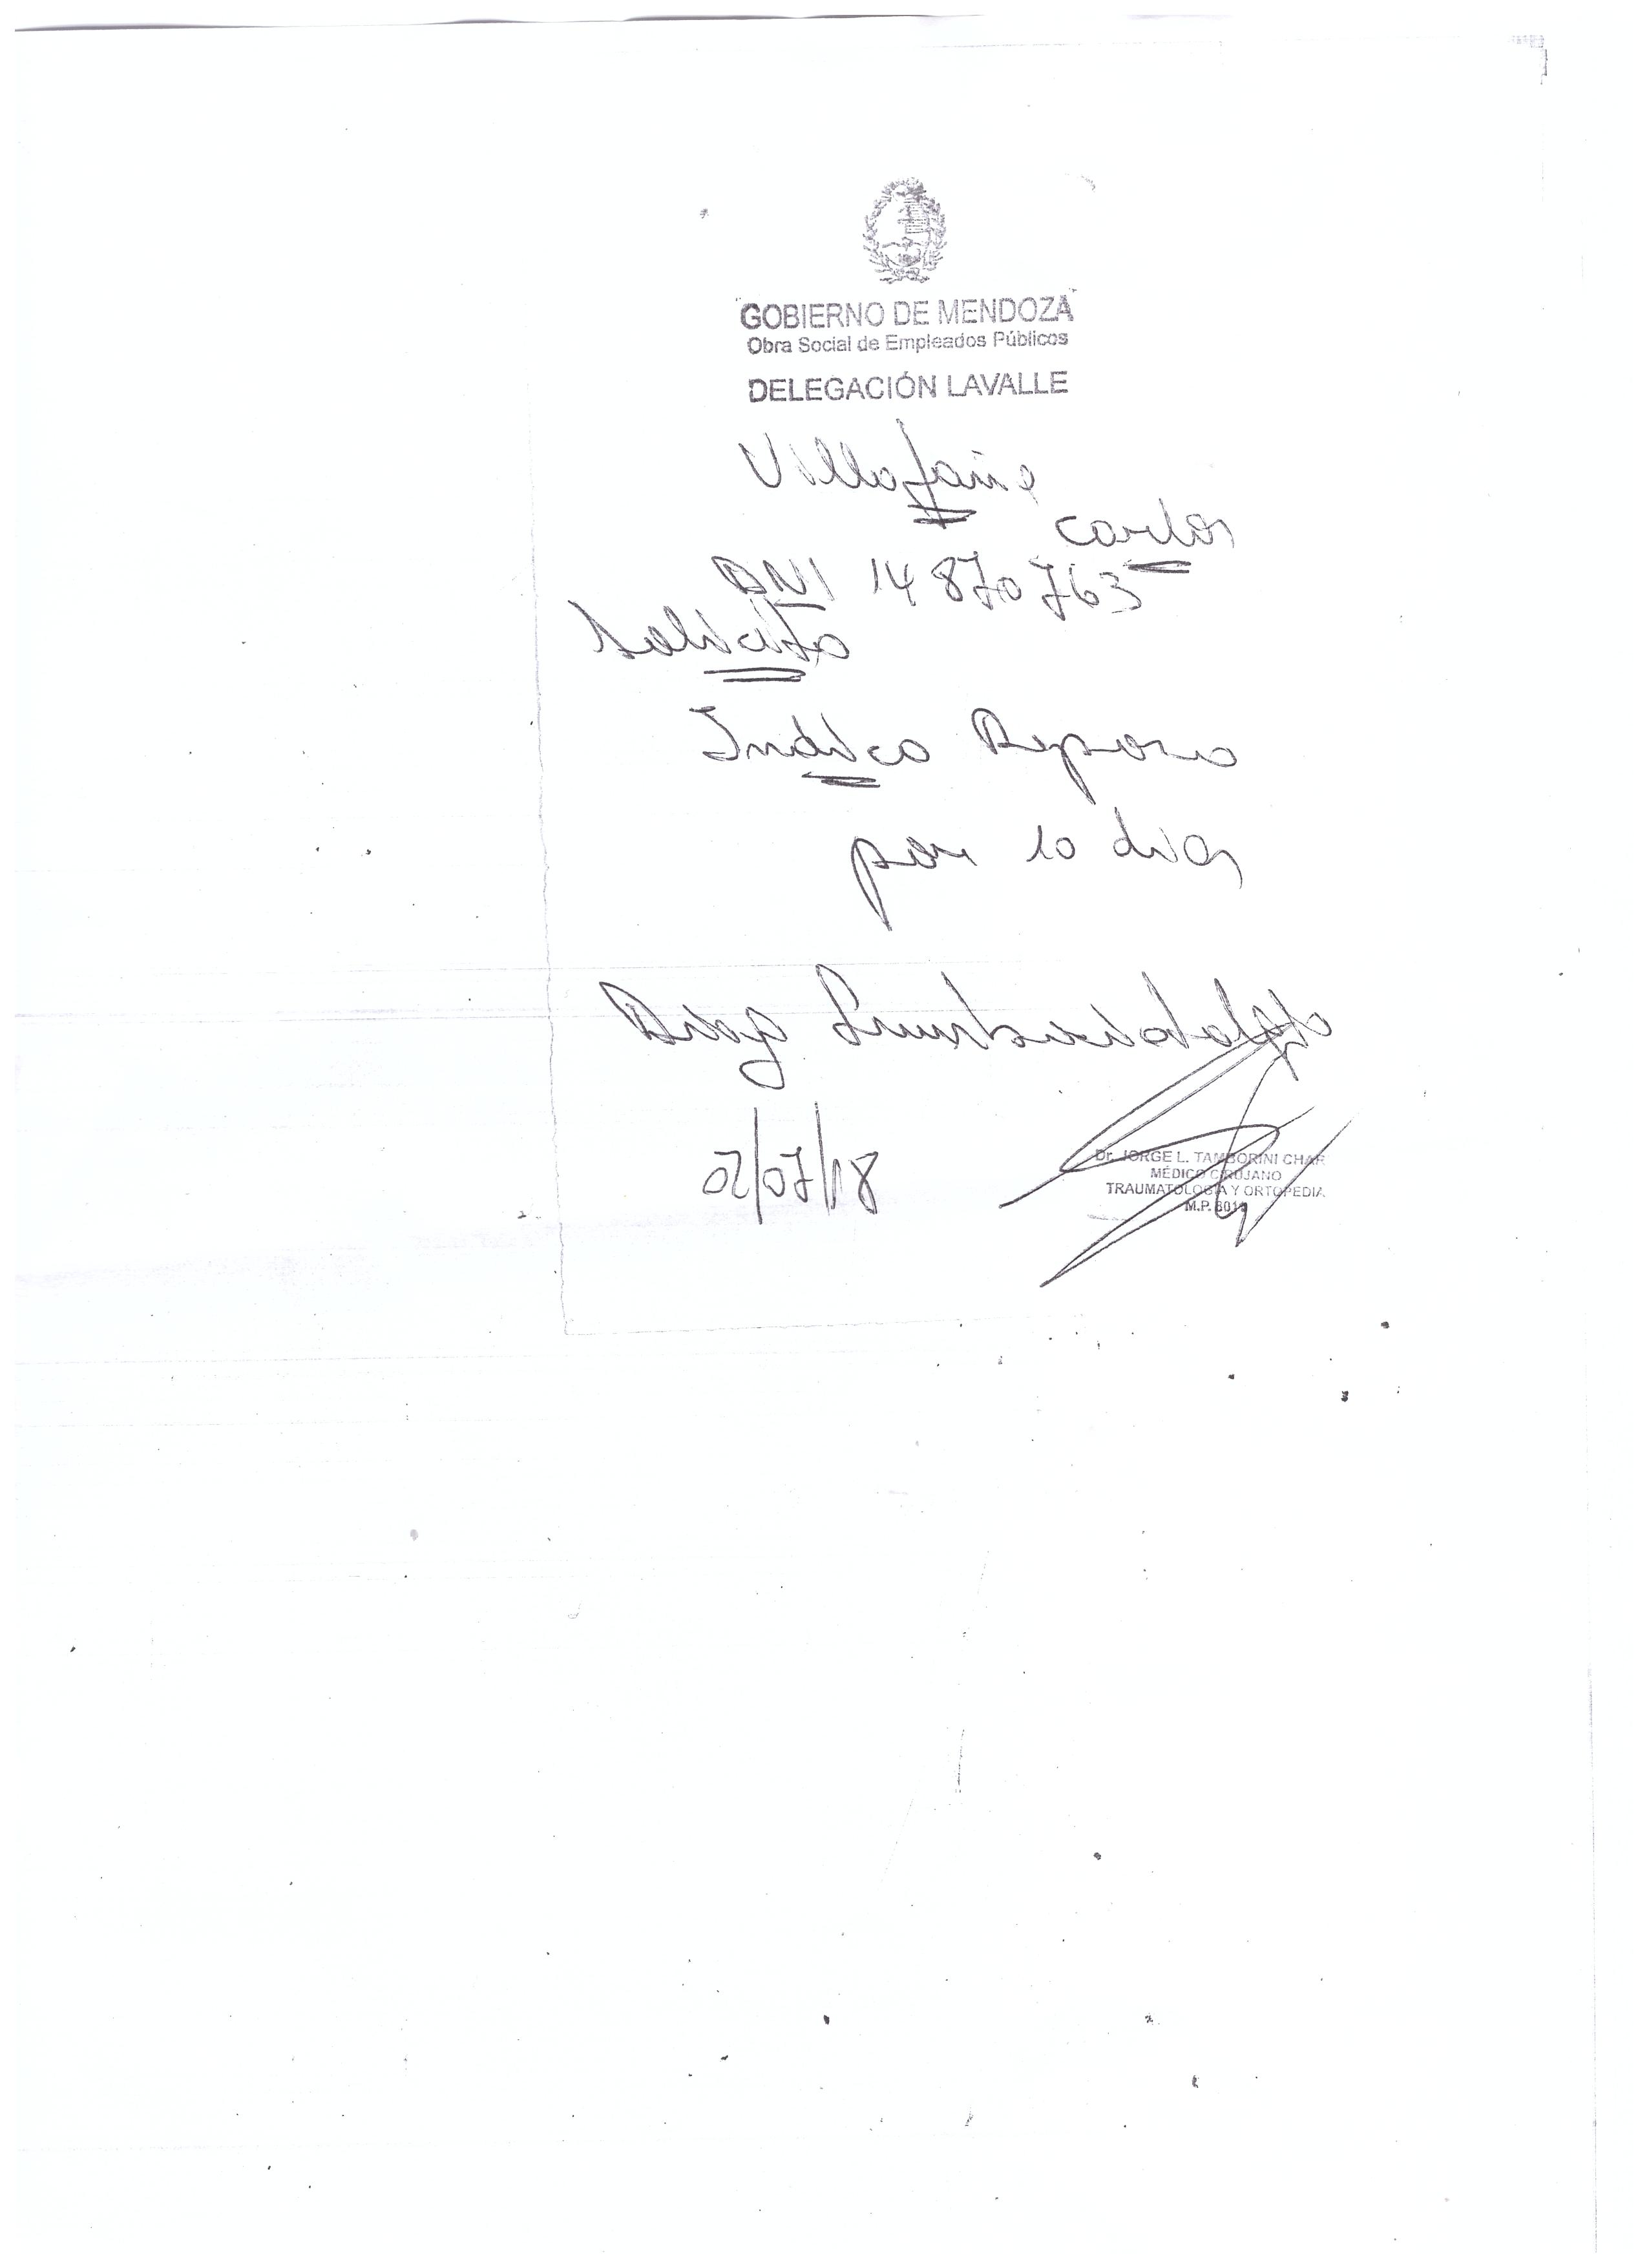 GOBIERNO DE MENDOZA
Obra Social de Empleados Públicos
DELEGACIÓN LAVALLE
Villafañe
Carlos
DNI 14870763
Solicito
Indico Reposo
por 10 dias
Diag Lumbociatalgia
02/07/18
Dr. JORGE L. TAMBORINI CHAR
MÉDICO CIRUJANO
TRAUMATOLOGÍA Y ORTOPEDIA
M.P.